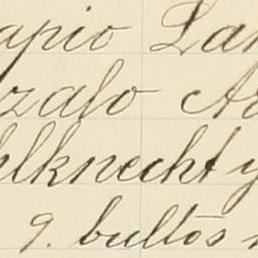 apio Lar
zalo Ar
hlknecht y
9. bultos